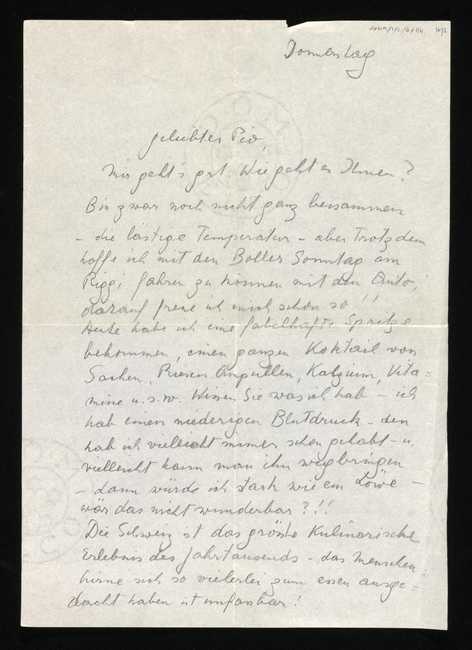 Donnerstag
geliebter Pio,
Mir geht's gut. Wie geht es Ihnen?
Bin zwar noch nicht ganz beisammen
– die lästige Temperatur – aber trotzdem
hoffe ich mit den Sonntag am
Riggi fahren zu können mit dem Auto,
darauf freue ich mich schon so!!
Heute habe ich eine fabelhafte Spritze
bekommen, einen ganzen Koktail von
Sachen, Riesen Ampullen, Kalzium, Vita=
mine u.s.w. Wissen Sie was ich hab – ich
hab einen niederigen Blutdruck – den
hab ich vielleicht immer schon gehabt – u.
vielleicht kann man ihn wegbringen
– dann würde ich stark wie ein Löwe –
wär das nicht wunderbar?!!
Die Schweiz ist das größte Kulinarische
Erlebnis des Jahrtausends – das Menschen
hirne sich so vielerlei zum essen ausge=
dacht haben ist unfassbar!